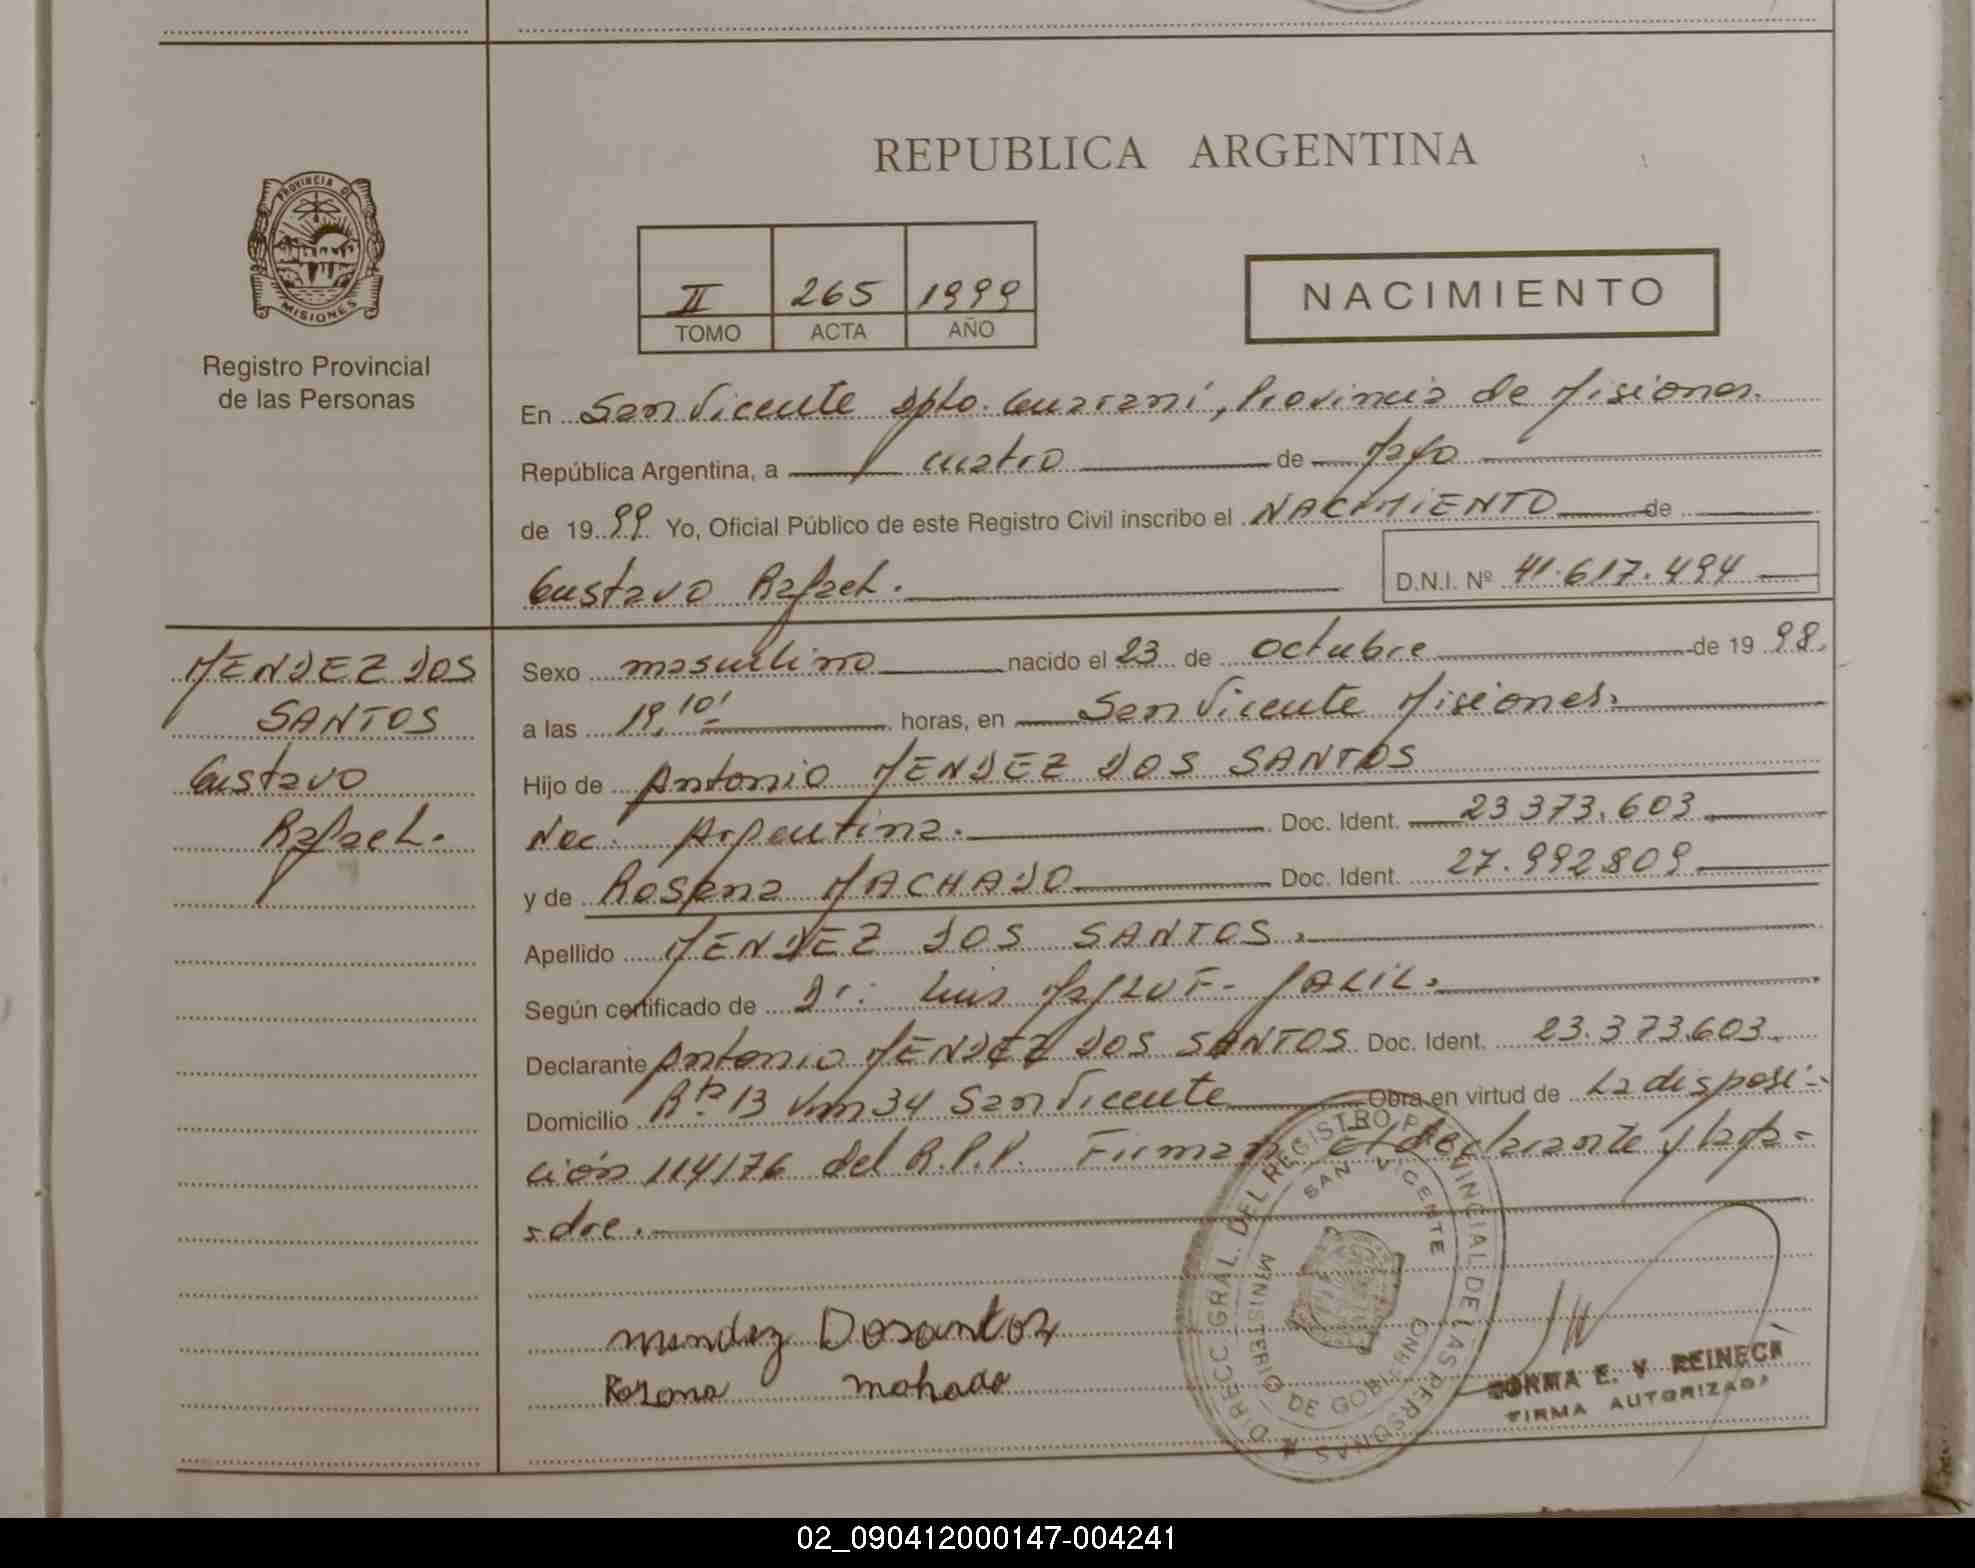 REPUBLICA ARGENTINA
PROVINCIA DE
MISIONES
Registro Provincial
de las Personas
II 265 1999
TOMO ACTA AÑO
NACIMIENTO
En San Vicente Dpto. Guaraní, Provincia de Misiones.
República Argentina, a cuatro de Mayo
de 19 99. Yo, Oficial Público de este Registro Civil inscribo el NACIMIENTO de
Gustavo Rafael. D.N.I. Nº 41.617.494
MENDEZ DOS
SANTOS
Gustavo
Rafael.
Sexo masculino nacido el 23 de octubre de 19 98.
a las 19,10' horas, en San Vicente Misiones.
Hijo de Antonio MENDEZ DOS SANTOS
Nac. Argentina. Doc. Ident. 23.373.603
y de Rosana MACHADO Doc. Ident. 27.992.809
Apellido MENDEZ DOS SANTOS.
Según certificado de Dr. Luis JALIL.
Declarante Antonio MENDEZ DOS SANTOS Doc. Ident. 23.373.603.
Domicilio Rta 13 Km 34 San Vicente Obra en virtud de La disposi-
ción 114/76 del R.P.P. Firman el declarante y la ma-
-dre.
mendez Dosantoz
Rosana mahado
DIRECC GRAL. DEL REGISTRO PROVINCIAL DE LAS PERSONAS
SAN VICENTE
MINISTERIO DE GOBIERNO
NORMA E. V. REINECK
FIRMA AUTORIZADA
02_090412000147-004241